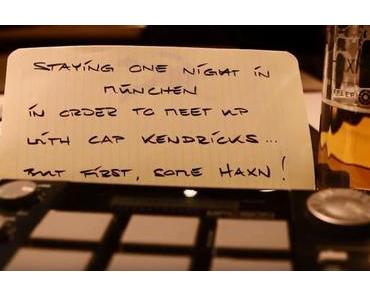 STAYING ONE NIGHT IN
MÜNCHEN
IN ORDER TO MEET UP
WITH CAP KENDRICKS...
BUT FIRST, SOME HAXN!